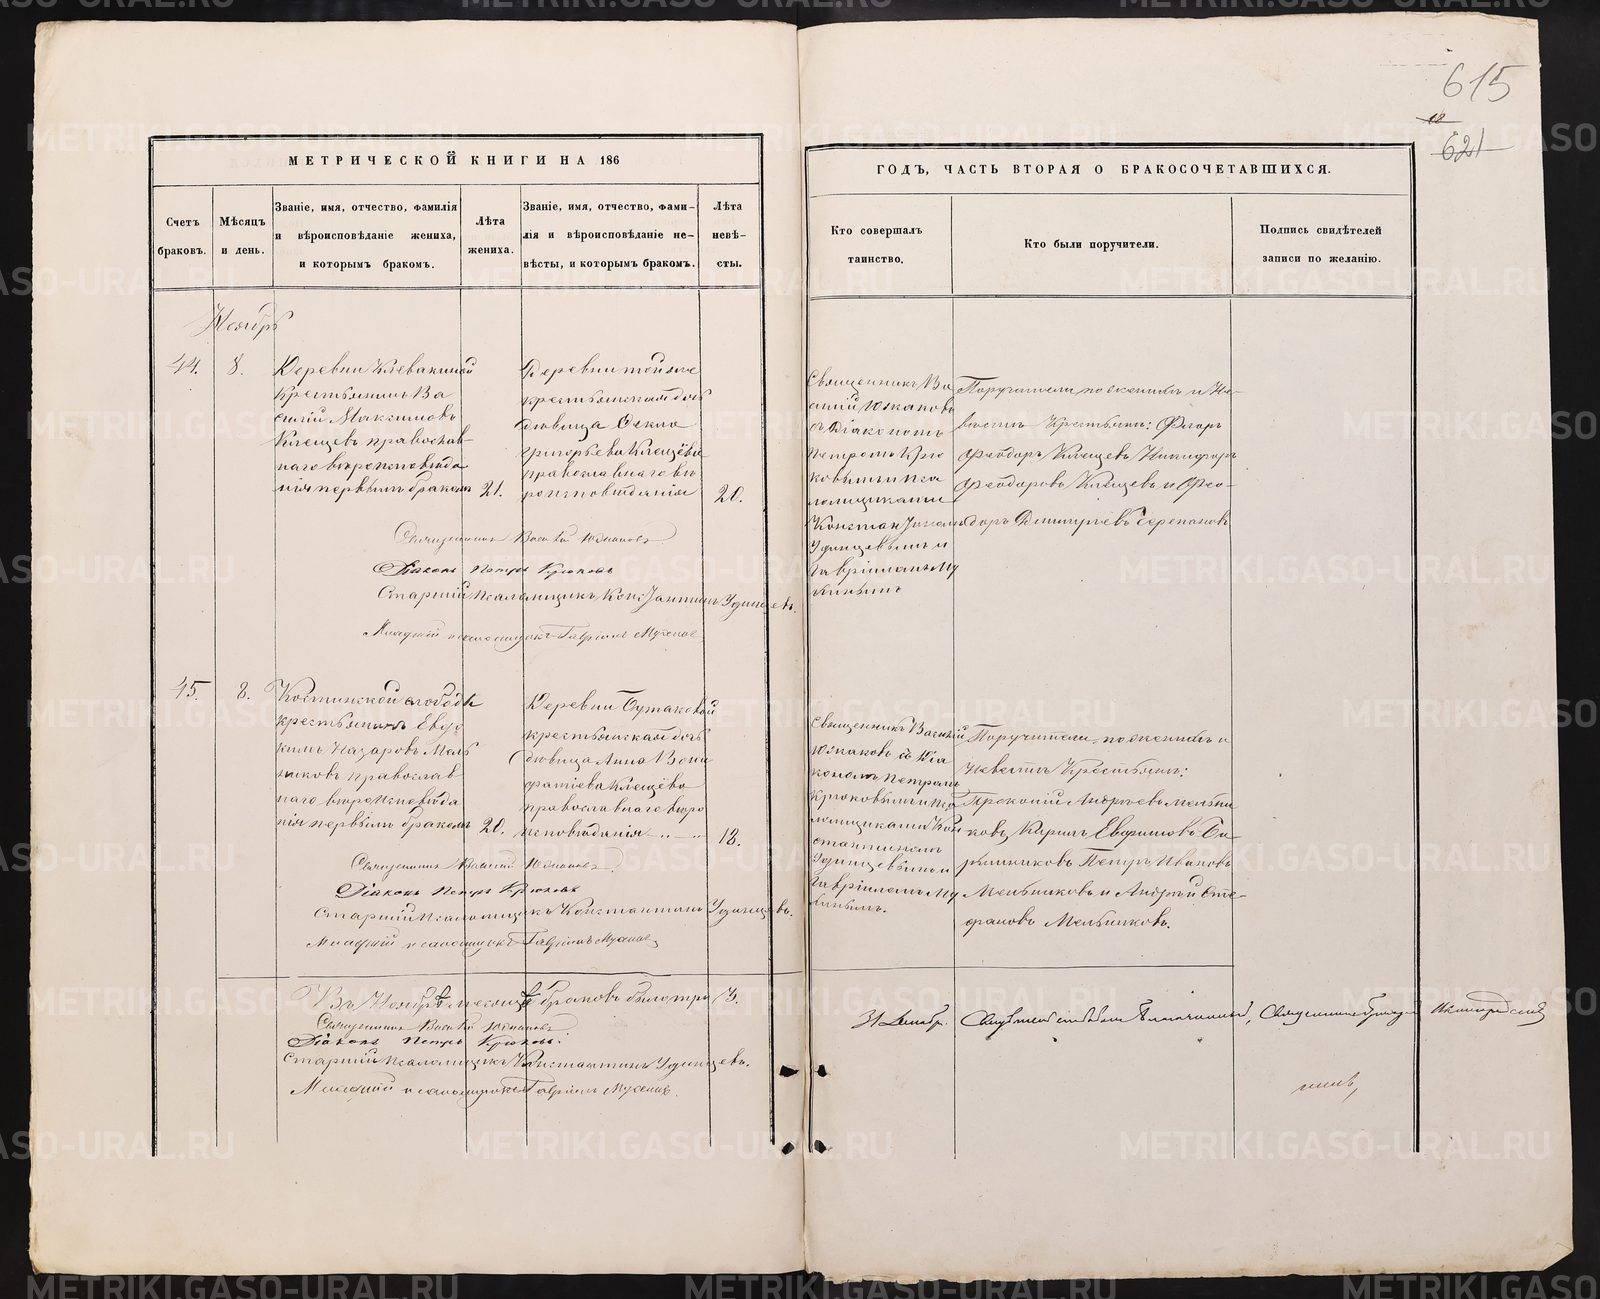 615
18
621
МЕТРИЧЕСКОЙ КНИГИ НА 186
ГОДЪ, ЧАСТЬ ВТОРАЯ О БРАКОСОЧЕТАВШИХСЯ.
Счетъ
браковъ.
Мѣсяцъ
и день.
Званіе, имя, отчество, фамилія
и вѣроисповѣданіе жениха,
и которымъ бракомъ.
Лѣта
жениха.
Званіе, имя, отчество, фами-
лія и вѣроисповѣданіе не-
вѣсты, и которымъ бракомъ.
Лѣта
невѣ-
сты.
Кто совершалъ
таинство.
Кто были поручители.
Подпись свидѣтелей
записи по желанію.
Ноябрь
44.
8.
Деревни Клевакиной
крестьянинъ Ва
силій Максимовъ
Клещевъ православ-
наго вѣроисповѣда
нія первымъ бракомъ
21.
Деревни той же
крестьянская дочь
дѣвица Ѳекла
Григорьева Клещёва
православнаго вѣ
роисповѣданія
20.
Священникъ Ва
силій Южаковъ
съ Діакономъ
Петромъ Крю
ковымъ и пса
ломщиками
Константиномъ
Удинцевымъ и
Гавріиломъ Му
хинымъ
Поручители по женихѣ и не-
вѣстѣ Крестьяне: Флоръ
Феодоръ Клещевъ Никифоръ
Феодоровъ Клещевъ и Фео-
доръ Димитріевъ Черепановъ
Священникъ Василій Южаковъ
Діаконъ Петръ Крюковъ
Старшій Псаломщикъ Константинъ Удинцевъ.
Младшій псаломщикъ Гавріилъ Мухинъ
45.
8.
Костинской слободы
крестьянинъ Евдо
кимъ Назаровъ Мель
никовъ православ
наго вѣроисповѣда
нія первымъ бракомъ
20.
Деревни Бутаковой
крестьянская дочь
дѣвица Анна Вони
фатіева Клещёва
православнаго вѣро
исповѣданія
18.
Священникъ Василій
Южаковъ съ Діа
кономъ Петромъ
Крюковымъ и пса
ломщиками Кон
стантиномъ
Удинцевымъ и
Гавріиломъ Му
хинымъ.
Поручители по женихѣ и
невѣстѣ Крестьяне:
Прокопій Андреевъ Мельни
ковъ, Кирилъ Евфимовъ Бо
рышниковъ Петръ Ивановъ
Мельниковъ и Андрей Сте-
фановъ Мельниковъ.
Священникъ Василій Южаковъ
Діаконъ Петръ Крюковъ
Старшій Псаломщикъ Константинъ Удинцевъ.
Младшій псаломщикъ Гавріилъ Мухинъ
Въ Ноябрѣ мѣсяцѣ браковъ было три 3.
Священникъ Василій Южаковъ.
Діаконъ Петръ Крюковъ.
Старшій Псаломщикъ Константинъ Удинцевъ.
Младшій псаломщикъ Гавріилъ Мухинъ.
31 Декабр. Свидѣтельствовалъ Благочинный, Священникъ
METRIKI.GASO-URAL.RU